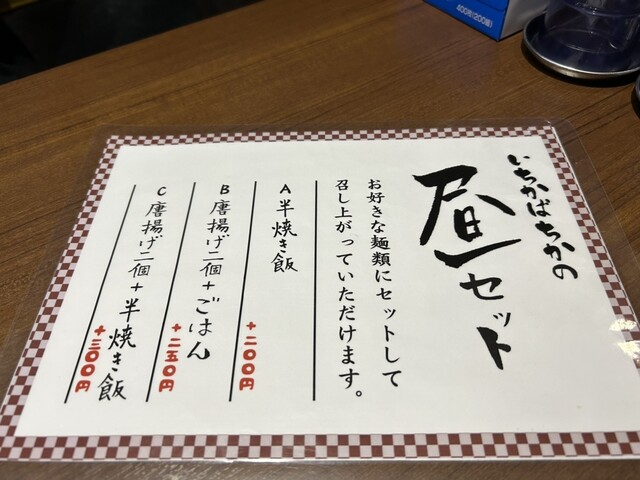 いちかばちかの
昼セット
お好きな麺類にセットして
召し上がっていただけます。
A 半焼き飯
+二〇〇円
B 唐揚げ二個+ごはん
+二五〇円
C 唐揚げ二個+半焼き飯
+三〇〇円
400枚(200組)